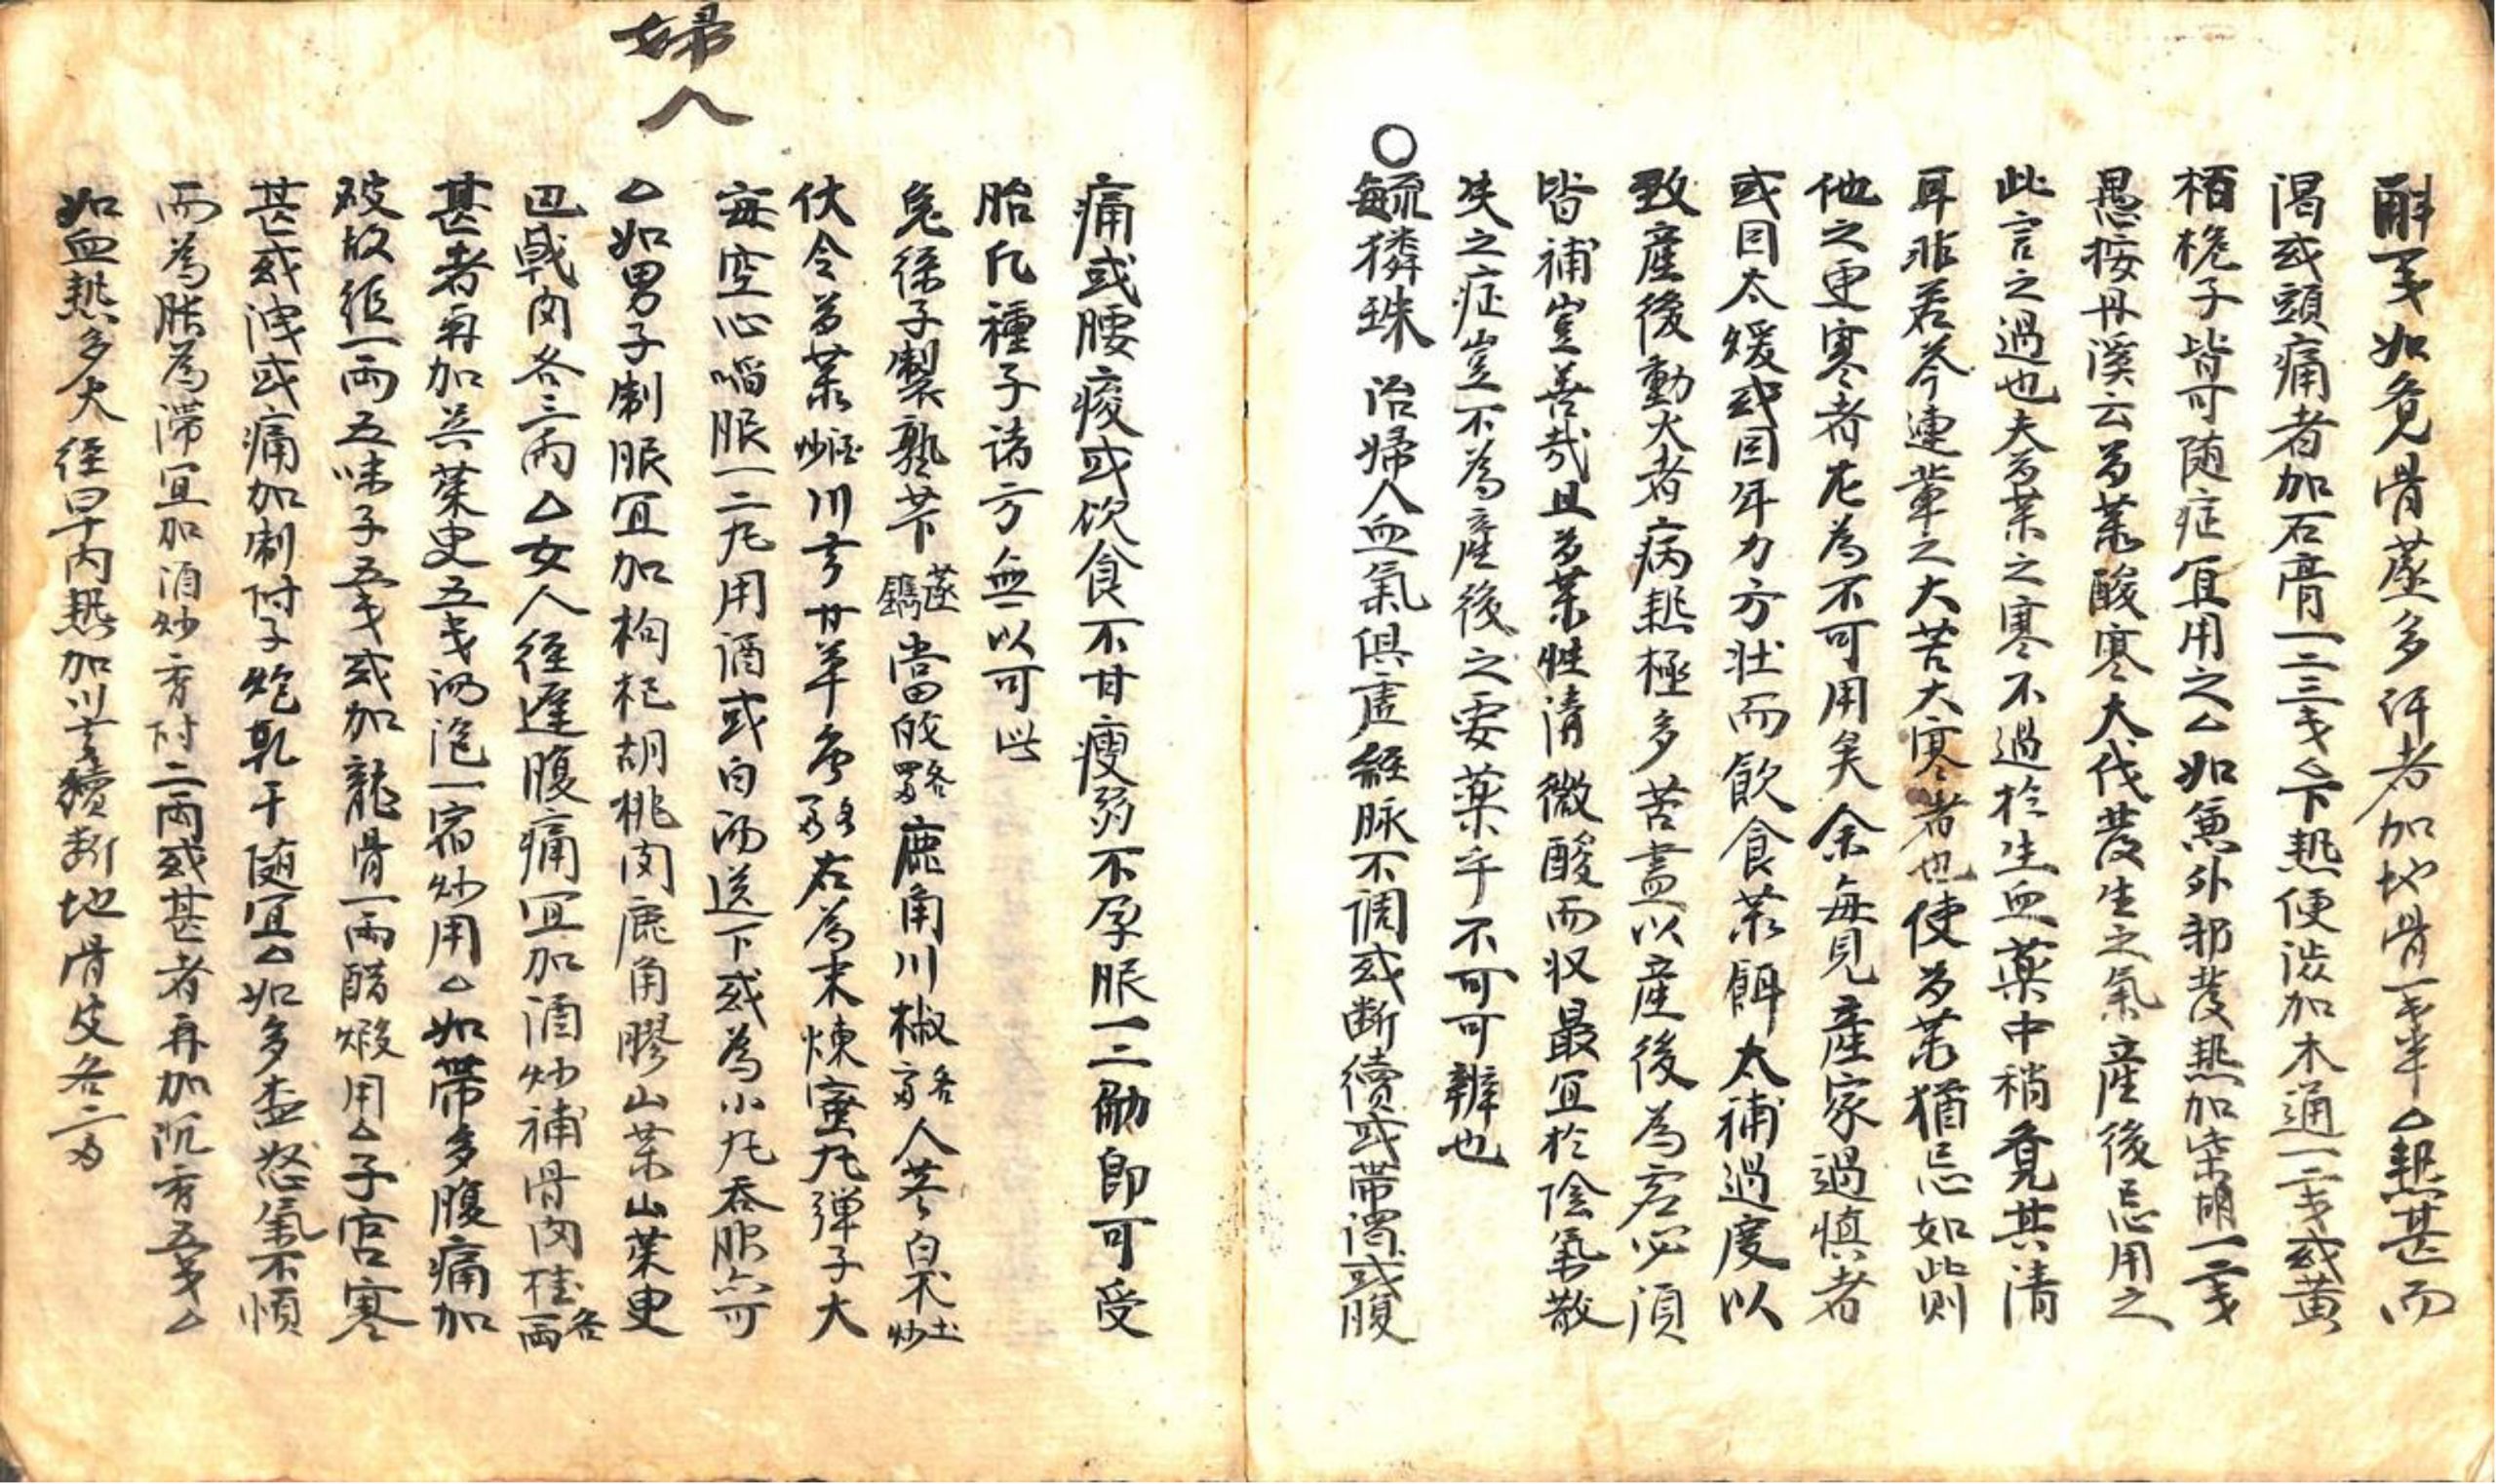 斛一戔如覓骨蒸多汗者加地骨一戔半△熱甚而
渴或頭痛者加石膏一二三戔△下熱便澁加木通一二戔或黃
栢梔子皆可随症宜用之△如兼外邪發熱加柴胡一二戔
愚按丹溪云芍薬酸寒大伐發生之氣産後忌用之
此言之過也夫芍薬之寒不過於生血藥中稍覓其清
耳非若芩連輩之大苦大寒者也使芍薬猶忌如此則
他之更寒者尤為不可用矣余每見産家過慎者
或因太煖或因年力方壮而飲食薬餌太補過度以
致産後動火者病熱極多若盡以産後為虚必須
皆補豈善哉且芍薬性清微酸而収最宜於陰氣散
失之症豈不為産後之要薬乎不可可辨也
○毓麟珠 治婦人血氣俱虛経脉不調或断續或帯濁或腹
婦人
痛或腰痠或飲食不甘瘦弱不孕服一二劑即可受
胎凡種子諸方無以可此
兔絲子製熟芐蒸搗當飯各四兩鹿角川椒各二兩人参白朮土炒
伏令芍薬酒炒川芎甘草各二兩右為末煉蜜丸弾子大
每空心嚼服一二丸用酒或白湯送下或為小丸吞服亦可
△如男子制服宜加枸杞胡桃肉鹿角膠山薬山茱更
巴戟肉各三兩△女人経遲腹痛宜加酒炒補骨肉桂各一兩
甚者再加吳茱更五戔湯泡一宿炒用△如帯多腹痛加
破故紙一兩五味子五戔或加龍骨一兩醋煅用△子宮寒
甚或洩或痛加制附子炮乾干随宜△如多欝怒氣不順
而為脹為滞宜加酒炒香附二兩或甚者再加沉香五戔△
如血熱多火経早内熱加川芎續断地骨皮各二兩